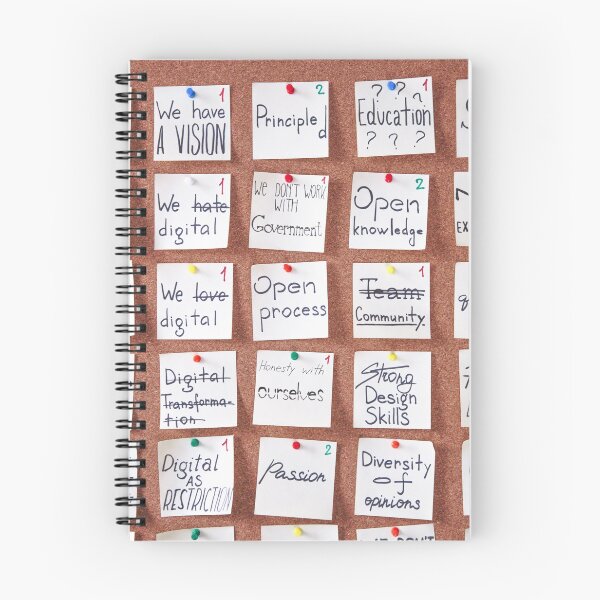 1
We have
A VISION
2
Principled
? ? ?
1
Education
? ? ?
1
We hate
digital
1
WE DON'T WORK
WITH
Government
2
Open
knowledge
EX
1
We love
digital
Open
process
1
Team
Community
Digital
Transforma-
tion
1
Honesty with
ourselves
Strong
Design
Skills
1
Digital
AS
RESTRICTION
2
Passion
Diversity
of
opinions
DON'T